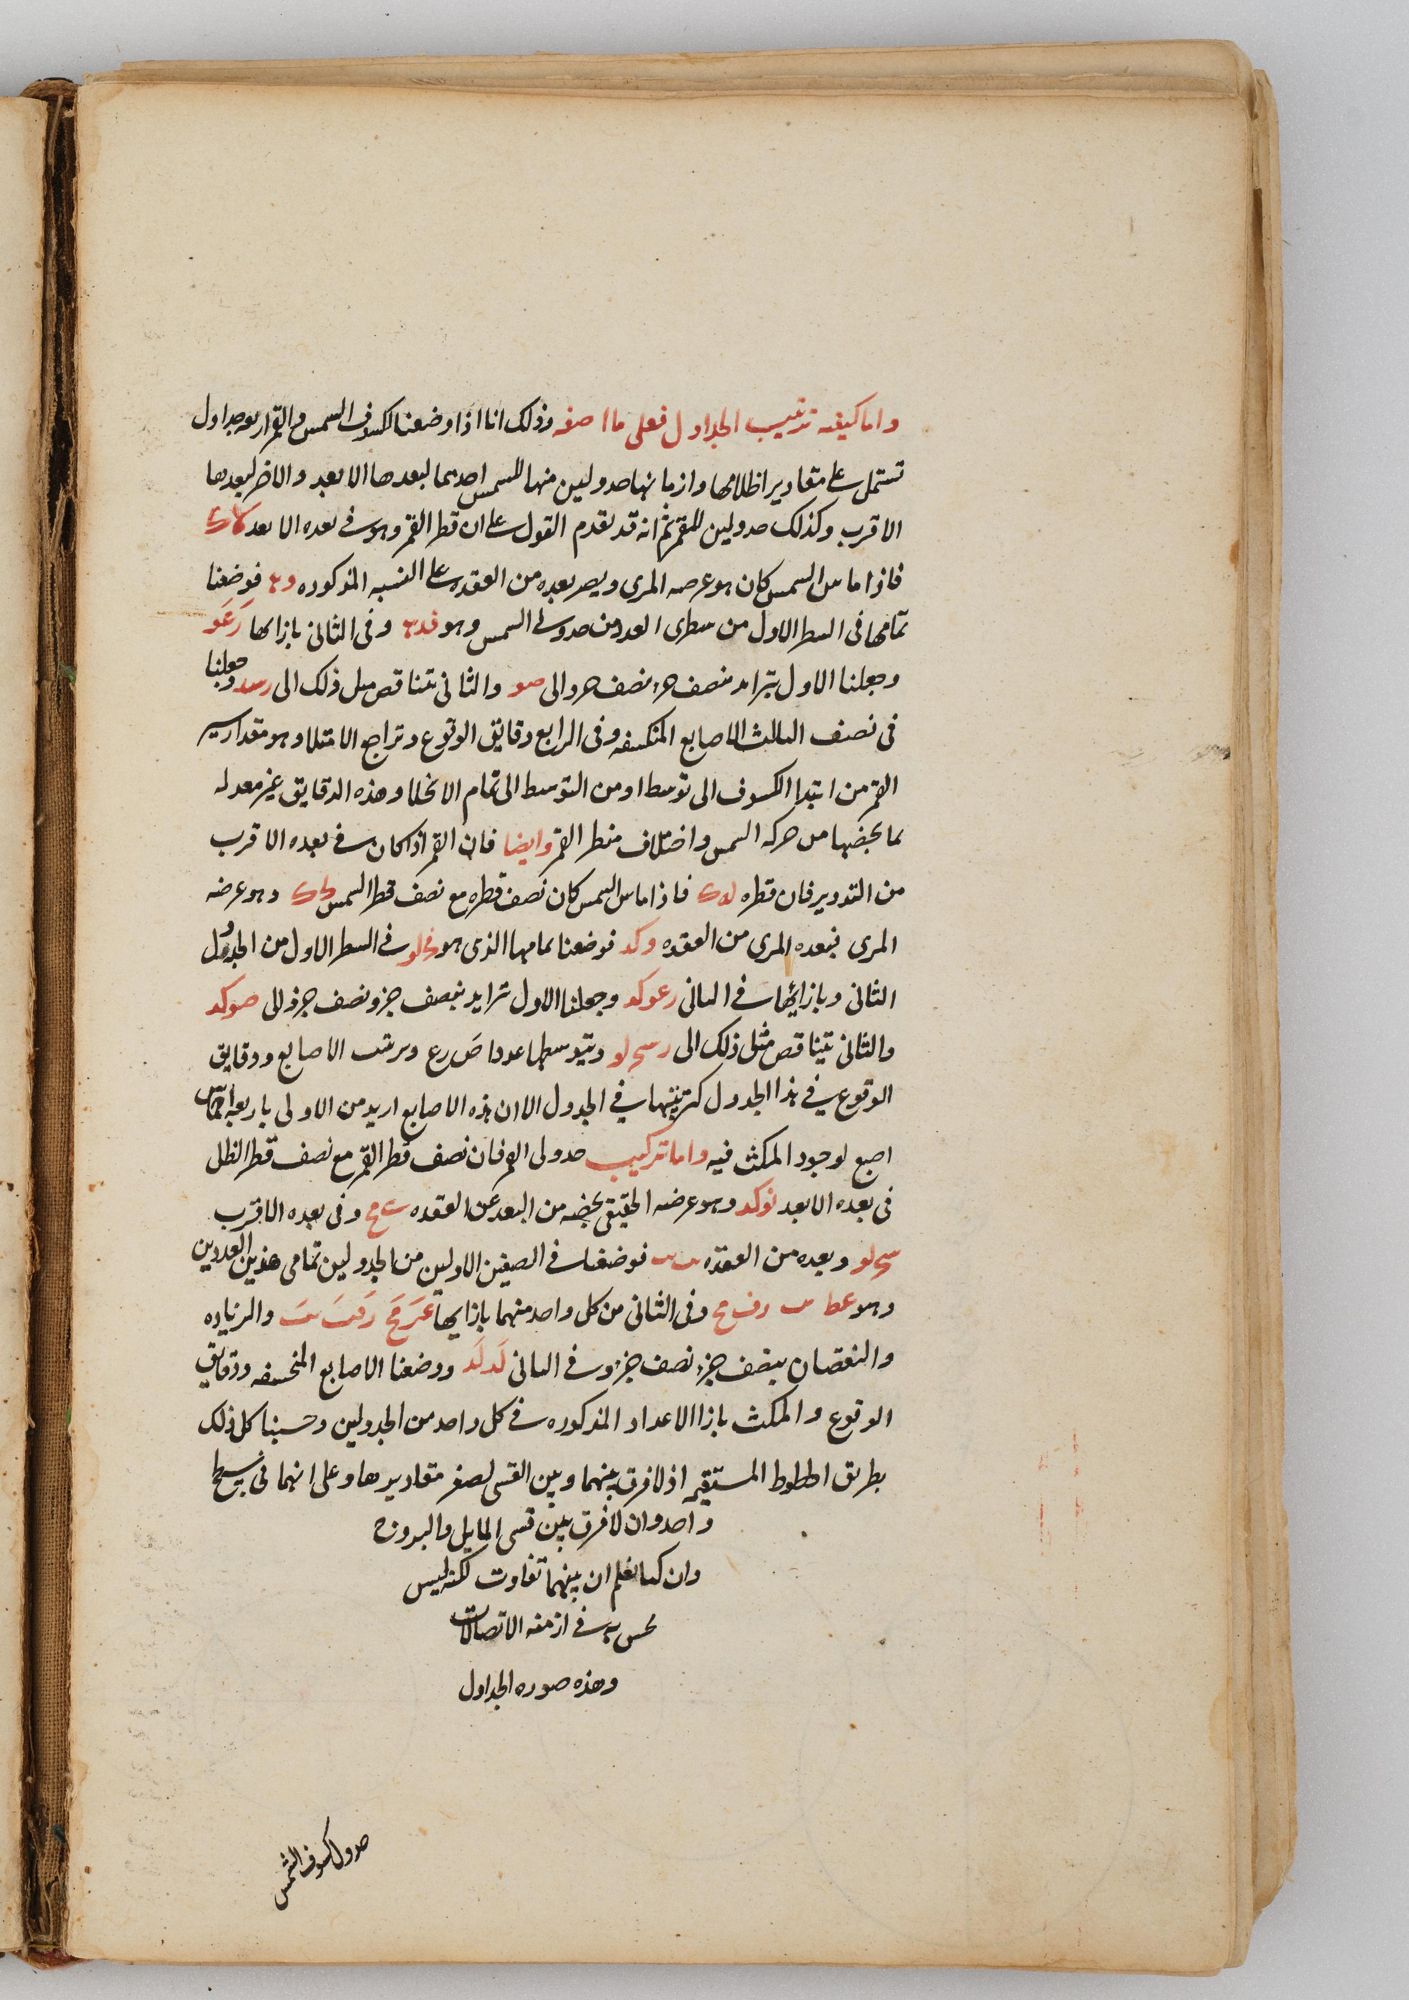 واما كيفيه ترتيب الجداول فعلى ما اصفه وذلك انا اذا وضعنا لكسوف الشمس والقمر اربعه جداول
تشتمل على مقادير اظلامها وازمانها جدولين منها للشمس احدهما لبعدها الابعد والاخر لبعدها
الاقرب وكذلك جدولين للقمر ثم انه قد تقدم القول على ان قطر القمر وهو في بعده الابعد
فاذا ماس الشمس كان هو عرضه المرى ويصير بعده من العقده على النسبه المذكوره فوضعنا
تمامها في السطر الاول من سطرى العدد من جدولى الشمس وهو وفى الثانى بازائها
وجعلنا الاول يتزايد بنصف جزء نصف جزء الى صو والثانى يتناقص مثل ذلك الى رسد وجعلنا
فى نصف الثالث الاصابع المنكسفه وفى الرابع دقايق الوقوع وتراجع الامتلا وهو مقدار سير
القمر من ابتدا الكسوف الى توسطه او من التوسط الى تمام الانجلا وهذه الدقايق غير معدله
بما يخصها من حركه الشمس واختلاف منظر القمر وايضا فان القمر اذا كان في بعده الاقرب
من التدوير فان قطره فاذا ماس الشمس كان نصف قطره مع نصف قطر الشمس وهو عرضه
المرى فبعده المرى من العقده وكد فوضعنا تمامها الذى هو فحلو في السطر الاول من الجدول
الثانى وبازائها في الثانى رعوكد وجعلنا الاول يتزايد بنصف جزء ونصف جزء الى صوكد
والثانى يتناقص مثل ذلك الى رسحلو ويتوسطهما عددا ص رع ومرتب الاصابع ودقايق
الوقوع في هذا الجدول كترتيبها في الجدول الا ان هذه الاصابع ازيد من الاولى باربعه اخماس
اصبع لوجود المكث فيه واما تركيب جدولى القمر فان نصف قطر القمر مع نصف قطر الظل
فى بعده الابعد نوكد وهو عرضه الحقيقى يخصه من البعد عن العقده وفى بعده الاقرب
سحلو وبعده من العقده فوضعنا في الصفين الاولين من الجدولين تمامى هذين العددين
وهو عط وفى الثانى من كل واحد منهما بازايها والزياده
والنقصان بنصف جزء نصف جزء وفي الثانى لد لد ووضعنا الاصابع المنخسفه ودقايق
الوقوع والمكث بازا الاعداد المذكوره في كل واحد من الجدولين وحسبنا كل ذلك
بطريق الخطوط المستقيمه اذ لا فرق بينهما وبين القسى لصغر مقاديرها وعلى انهما فى بسيط
واحد وان لا فرق بين قسى المايل والبروج
وان كنا نعلم ان بينهما تفاوت لكنه ليس
يحس به في ازمنه الاتصالات
وهذه صوره الجداول
جدول كسوف الشمس